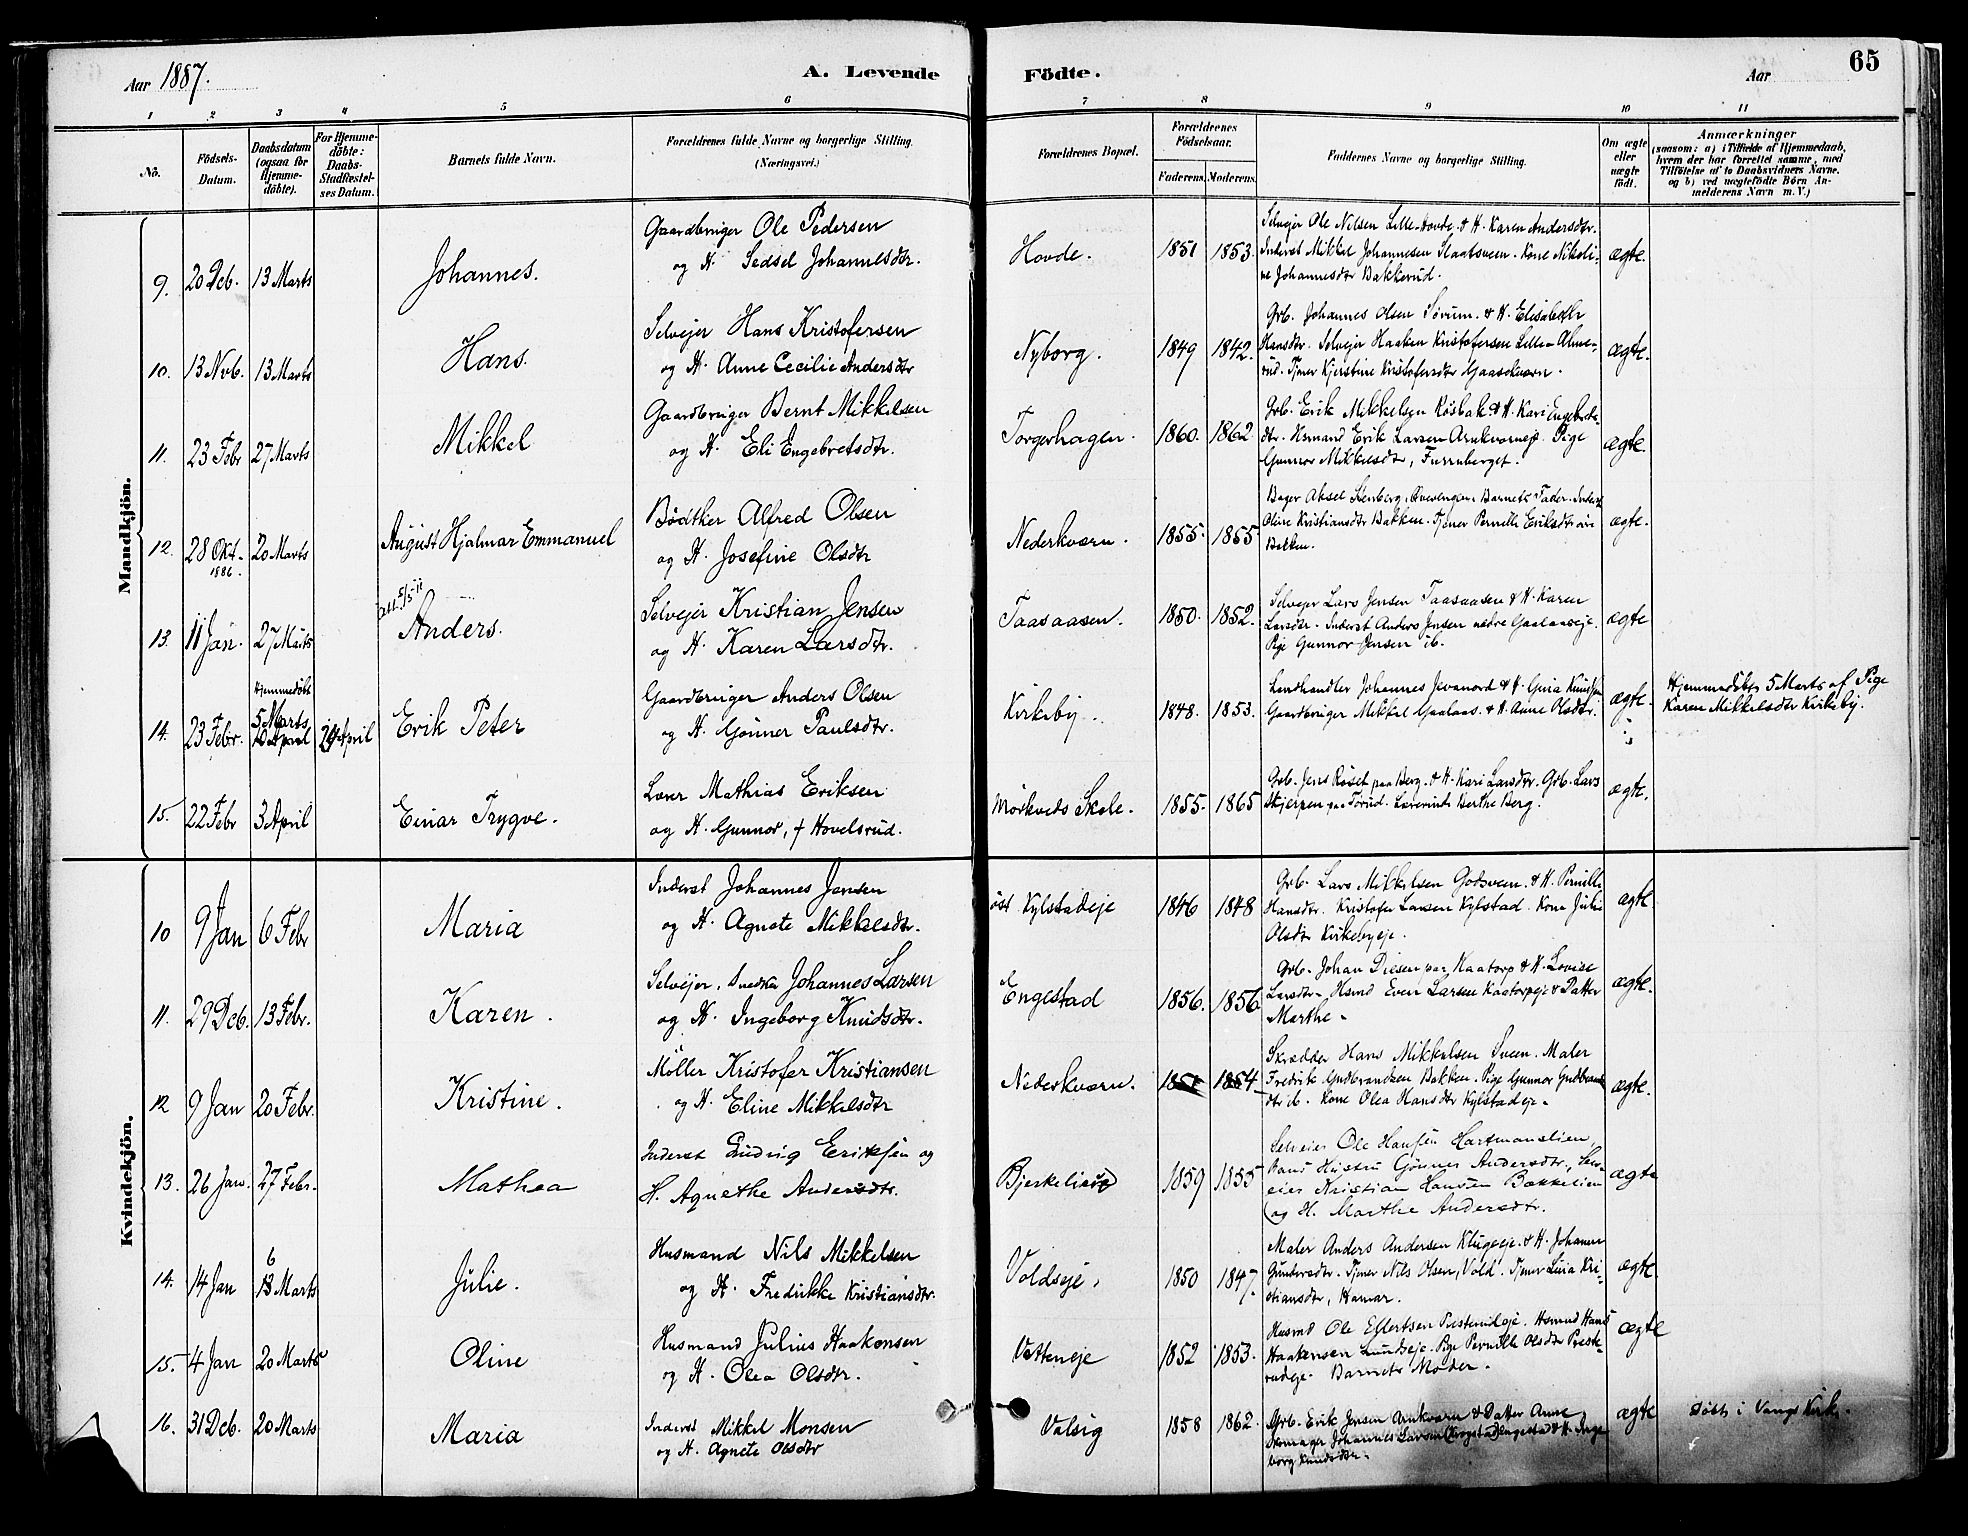 Aar 1887.
A. Levende Födte.
Aar
65
1 2 3 4 5 6 7 8 9 10 11
No.
Födsels-Datum.
Daabsdatum (ogsaa for Hjemme-döbte).
For Hjemme-döbte: Daabs-Stadfæstel-ses Datum.
Barnets fulde Navn.
Forældrenes fulde Navne og borgerlige Stilling. (Næringsvei.)
Forældrenes Bopæl.
Forældrenes Födselsaar.
Faderens. Moderens.
Faddernes Navne og borgerlige Stilling.
Om ægte eller uægte födt.
Anmærkninger
(saasom: a) i Tilfælde af Hjemmedaab, hvem der har forrettet samme, med Tilföielse af to Daabsvidners Navne. og b) ved uægtefödte Börn Anmelderens Navn m. V.)
Mandkjön.
9. 20 Deb. 13 Marts
Johannes.
Gaardbruger Ole Pedersen
og H. Sedsel Johannesdtr.
Hovde. 1851 1853.
Selvejer Ole Nilsen Lille-Hovde & H. Karen Andersdtr.
Inderst Mikkel Johannesen Staatsveen. Kone Nikoli-
ne Johannesdtr Bakkerud.
ægte.
10. 13 Nvb. 13 Marts
Hans.
Selvejer Hans Kristofersen
og H. Anne Cecilie Andersdtr
Nyborg. 1849 1842.
Grb. Johannes Olsen Sørum. & H. Elisabeth
Hansdtr. Selvejer Haaken Kristofersen Lille-Alme-
rud. Tjener Kjerstine Kristofersdtr Gaasekværn.
ægte.
11. 23 Febr 27 Marts
Mikkel
Gaardbruger Bernt Mikkelsen
og H. Eli Engebretsdtr.
Torgerhagen. 1860. 1862.
Grb. Erik Mikkelsen Kosbak & H. Kari Engebrets-
dtr. Hsmand Erik Larsen Arnkværneje. Pige
Gunnor Mikkelsdtr, Furruberget.
ægte.
12. 28 Okt. 1886. 20 Marts
August Hjalmar Emmanuel
Bødtker Alfred Olsen
og H. Josefine Olsdtr
Nederkværn. 1855. 1855
Bager Aksel Stenberg, Barnets Fader. Inderst
Oline Kristiansdtr Bakken. Tjener Pernille Eriksdtr
Bakken.
ægte.
13. 11 Jan. 27 Marts
Anders.
Selvejer Kristian Jensen
og H. Karen Larsdtr.
Taasaasen. 1850. 1852.
Selvejer Lars Jensen Taasaasen & H. Karen
Larsdtr. Inderst Anders Jensen nedre Gaalaaseje.
Pige Gunnor Jensen ib.
ægte
14. 23 Febr.
Hjemmedøbt
5 Marts
April
Erik Peter
Gaardbruger Anders Olsen
og H. Gønner Paulsdtr.
Kirkeby. 1848. 1853.
Landhandler Johannes Jevanord & H. Guria Knudsen
Gaardbruger Mikkel Gaalaas. & H. Anne Olsdtr.
ægte.
Hjemmedøbt 5 Marts af Pige
Karen Mikkelsdtr Kirkeby.
15. 22 Febr 3 April
Einar Trygve.
Lærer Mathias Eriksen
og H. Gunnor, f Hovelsrud.
Mørkveds Skole. 1855. 1865
Grb. Jens Røset paa Berg. & H. Kari Larsdtr. Grb. Lars
Skjerpen paa Sørud. Lærerinde Berthe Berg.
ægte.
Kvindekjön.
10 9 Jan 6 Febr
Maria
Inderst Johannes Jensen
og H. Agnete Mikkelsdtr.
øst. Kylstadeje 1846 1848
Grb. Lars Mikkelsen Godsveen. & H. Pernille
Hansdtr. Kristofer Larsen Kylstad. Kone Julie
Olsdtr Kirkebyeje.
ægte.
11. 29 Deb. 13 Febr.
Karen.
Selvejer, Snedker Johannes Larsen
og H. Ingeborg Knudsdtr.
Engestad 1856. 1856
Grb. Johan Diesen paa Kaatorp & H. Lovise
Larsdtr. Hsmd Even Larsen Kaatorpeje & Datter
Marthe.
ægte.
12 9 Jan 20 Febr.
Kristine.
Møller Kristofer Kristiansen
og H. Eline Mikkelsdtr
Nederkværn. 1854
Skrædder Hans Mikkelsen Sveen. Maler
Fredrik Gudbrandsen Bakken. Pige Gunnor Gudbrands-
dtr ib. Kone Olea Hansdtr Kylstadeje.
ægte.
13. 26 Jan. 27 Febr.
Mathea
Inderst Ludvig Eriksen og
H. Agnethe Andersdtr.
1859 1855
Selveier Ole Hansen Hartmanslien,
Hans Hustru Gønner Andersdtr., Sel-
eier Kristian Hansen Bakkelien
og H. Marthe Andersdtr.
ægte
14. 14 Jan 6 Marts
Julie.
Husmand Nils Mikkelsen
og H. Fredrikke Kristiansdtr.
Voldseje, 1850 1847.
Maler Anders Andersen Klugeeje. & H. Johanne
Gundersdtr. Tjener Nils Olsen, Vold. Tjener Luia Kri-
stiansdtr, Hamar.
ægte.
15. 4 Jan 20 Marts
Oline
Husmand Julius Haakonsen
og H. Olea Olsdtr.
Votteneje 1852 1853.
Husmd Ole Ellertsen Presterudeje. Husmd Hans
Haakensen Lundseje. Pige Pernille Olsdtr Preste-
rudeje. Barnets Moder.
ægte
16. 31 Deb. 20 Marts
Maria
Inderst Mikkel Monsen
og H. Agnete Olsdtr
Valsig 1858 1862.
Grb. Erik Jensen Arnkværn & Datter Anne
Skomager Johannes Larsen Engestad & H. Inge-
borg Knudsdtr.
ægte
Døbt i Vangs Kirke.